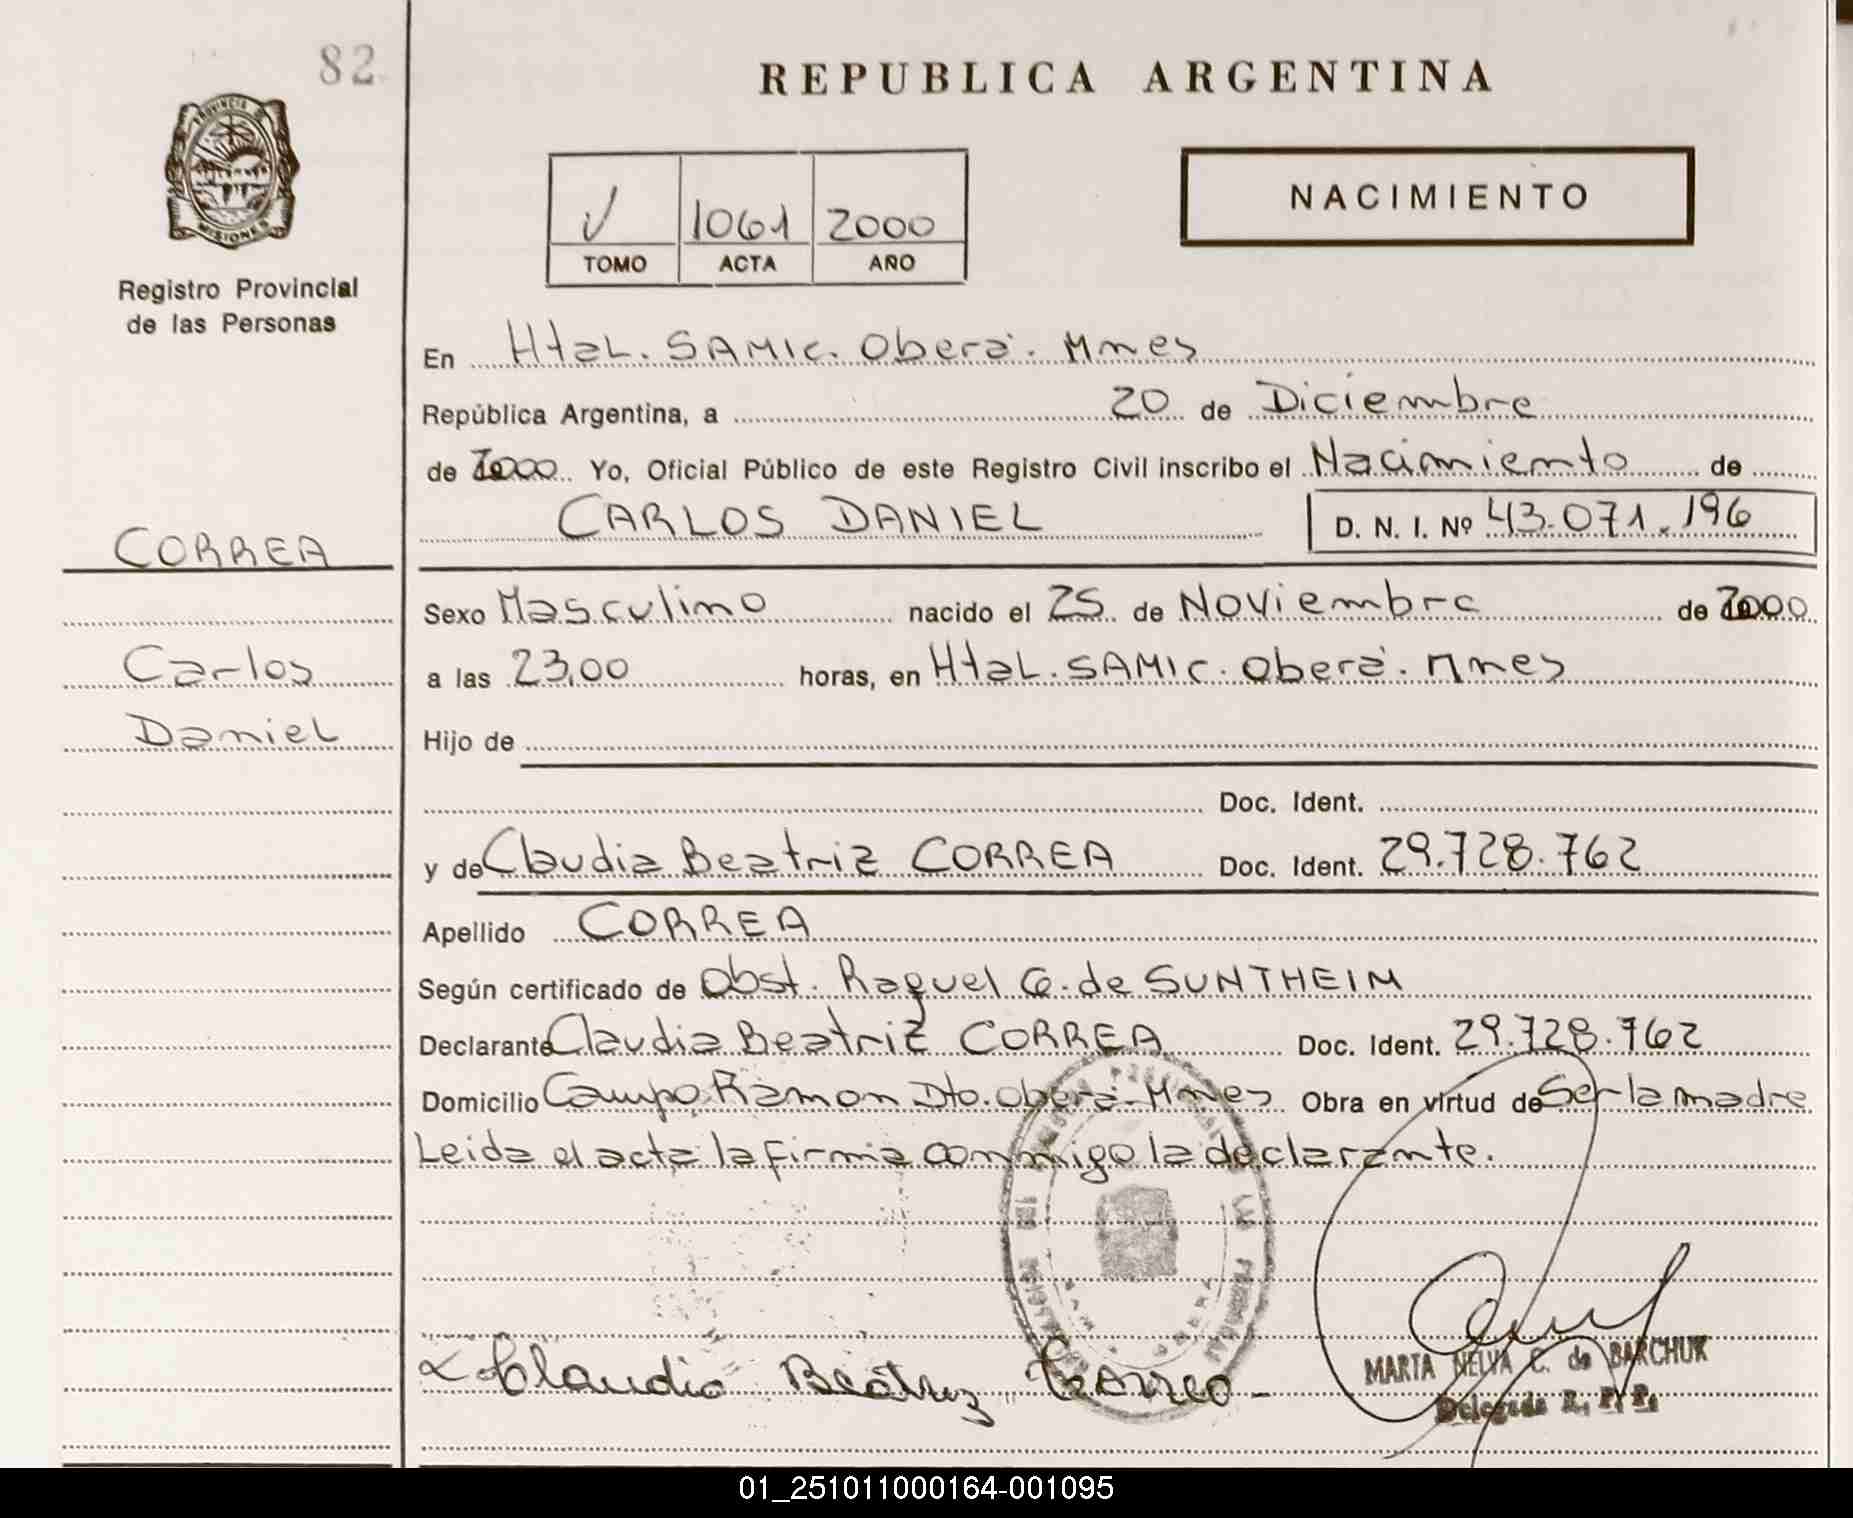 82
REPUBLICA ARGENTINA
PROVINCIA DE
MISIONES
Registro Provincial
de las Personas
V 1061 2000
TOMO ACTA AÑO
NACIMIENTO
En Htal. SAMIC. Oberá. Mnes
República Argentina, a 20 de Diciembre
de 2000 Yo, Oficial Público de este Registro Civil inscribo el Nacimiento de
CARLOS DANIEL D. N. I. Nº 43.071.196
CORREA
Sexo Masculino nacido el 25 de Noviembre de 2000
Carlos
a las 23,00 horas, en Htal. SAMIC. Oberá. Mnes
Daniel
Hijo de
Doc. Ident.
y de Claudia Beatriz CORREA Doc. Ident. 29.728.762
Apellido CORREA
Según certificado de Obst. Raquel G. de SUNTHEIM
Declarante Claudia Beatriz CORREA Doc. Ident. 29.728.762
Domicilio Campo Ramon Dto. Oberá. Mnes Obra en virtud de Ser la madre
Leida el acta la firma conmigo la declarante.
Claudia Beatriz Correa
MARTA NELVA C. de BARCHUK
Delegada R. P. P.
01_251011000164-001095